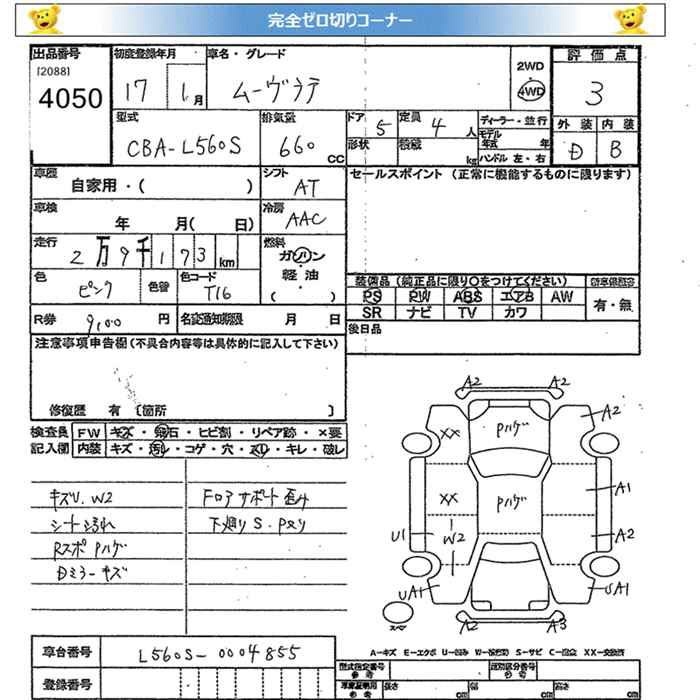 完全ゼロ切りコーナー
出品番号 初度登録年月 車名・グレード 2WD 評価点
[2088] 4050 17 1月 ムーヴラテ 4WD 3
型式 排気量 ドア 5 定員 4 人 ディーラー・並行 外装 内装
CBA-L560S 660 cc 形状 積載 kg モデル年式 年 D B
ハンドル 左・右
車歴 自家用・( ) シフト AT セールスポイント (正常に機能するものに限ります)
車検 年 月( 日) 冷房 AAC
走行 2万9千173km 燃料 ガソリン
軽油
( )
色 ピンク 色替 色コード T16 装備品 (純正品に限り○をつけてください)
PS PW ABS エアB AW 有・無
R券 9,100 円 名変通知期限 月 日 SR ナビ TV カワ
後日品
注意事項申告欄(不具合内容等は具体的に記入して下さい)
修復歴 有 [箇所 ]
検査員 FW キズ・飛石・ヒビ割・リペア跡・×要
記入欄 内装 キズ・汚れ・コゲ・穴・スレ・キレ・破レ
キズU.W2 フロアサポート歪み
シート汚れ 下廻りS.Pスリ
RスポPハゲ
Dミラーキズ
A2 A2
A2
XX Pハゲ
XX Pハゲ A1
U1 W2 A2
UA1 UA1
A2 A3
スペア
A-キズ E-エクボ U-凹み S-サビ C-腐食 XX-交換済
車台番号 L560S-0004855
登録番号
型式指定番号 参考 類別区分番号 参考
長さ cm 幅 cm 高さ cm